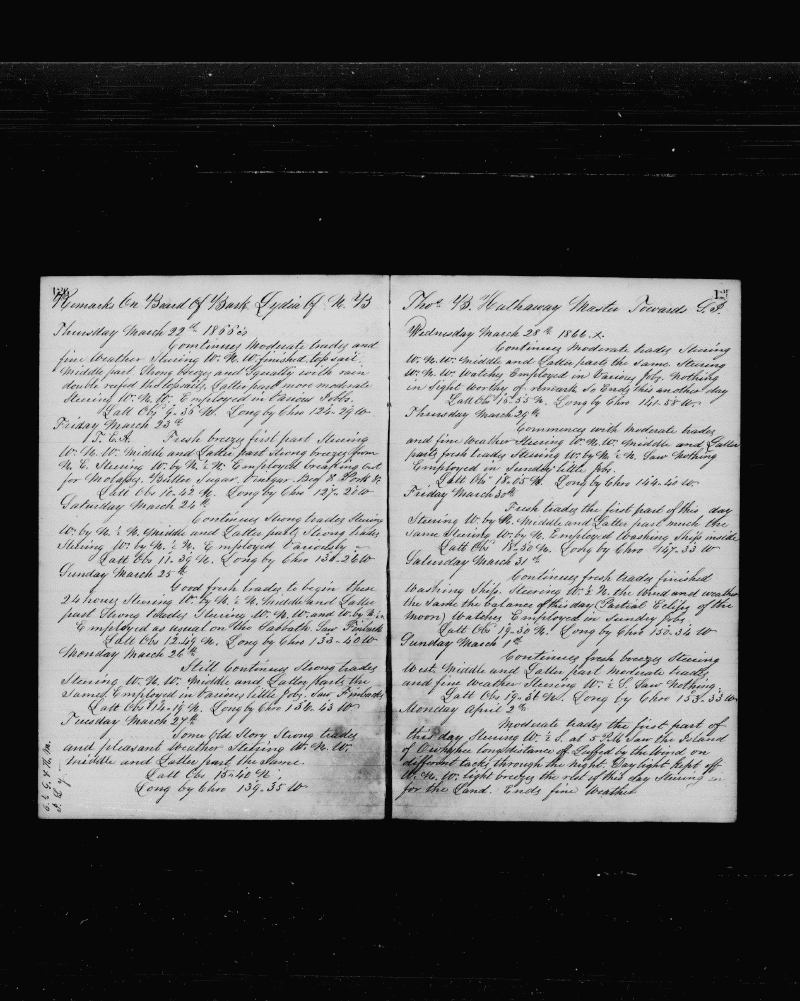 Remarks On Board Of Bark Lydia Of N. B
Thursday March 22th 1866
Continues Moderate trades and
fine Weather Steering W. N. W. finished top sail
Middle part Strong breezes and Squally with rain
double reefed the topsails, Latter part more moderate
Steering W. N. W. Employed in Various Jobs.
Latt Obs 9-36 N. Long by Chro 124-29 W
Friday March 23th
Fresh breezes first part Steering
W. N. W. Middle and Latter part Strong breezes from
N. E. Steering W. by N. ½ N. Employed breaking out
for Molases, Butter Sugar Vinegar Beef & Pork &c
Latt Obs 10-42 N. Long by Chro 127-20 W
Saturday March 24th
Continues Strong trades Steering
W. by N. ½ N. Middle and Latter parts Strong trades
Steering W. by N. ½ N. Employed Variously
Latt Obs 11-39 N. Long by Chro 130-26 W
Sunday March 25th
Good fresh trades to begin these
24 hours Steering W. by N. ½ N. Middle and Latter
part Strong trades Steering W. N. W. and W. by N. ½ N
Employed as usual on the Sabbath. Saw Finbacks
Latt Obs 12-49 N. Long by Chro 133-40 W
Monday March 26th
Still Continues Strong trades
Steering W. N. W. Middle and Latter parts the
Same. Employed in Various little Jobs. Saw Finbacks
Latt Obs 14-19 N. Long by Chro 136-43 W
Tuesday March 27th
Same Old Story Strong trades
and pleasant Weather Steering W. N. W.
Middle and Latter part the Same.
Latt Obs 15-40 N.
Long by Chro 139-35 W
Thos B. Hathaway Master Towards
Wednesday March 28th 1866
Continues Moderate trades Steering
W. N. W. Middle and Latter parts the Same Steering
W. N. W. Watches Employed in Various Jobs. Nothing
in Sight worthy of remark So Ends this another day
Latt Obs 16-55 N. Long by Chro 141-58 W.
Thursday March 29th
Commences with Moderate trades
and fine Weather Steering W. N. W. Middle and Latter
parts fresh trades Steering W. by N. ½ N. Saw Nothing
Employed in Sunday little Jobs.
Latt Obs 18.05 N. Long by Chro 144-40 W
Friday March 30th
Fresh trades the first part of this day
Steering W. by N. Middle and Latter part much the
Same Steering W. by N. Employed Washing Ship inside
Latt Obs 18-50 N. Long by Chro 147.33 W
Saturday March 31st
Continues fresh trades finished
Washing Ship. Steering W. ½ N. the Wind and weather
the Same the balance of this day (Partial Eclips of the
Moon) Watches Employed in Sundry Jobs.
Latt Obs 19-30 N. Long by Chro 150-34 W
Sunday March 1st
Continues fresh breezes Steering
West Middle and Latter part Moderate trades
and fine Weather Steering W. ½ S. Saw Nothing.
Latt Obs 19-36 N. Long by Chro 153.33 W
Monday April 2th
Moderate trades the first part of
this day Steering W. ½ S. at Saw the Island
of Owhyhee long distance off Luffed by the Wind on
different tacks through the Night. Daylight Kept off
W. N. W. light breezes the rest of this day Steering in
for the Land. Ends fine Weather